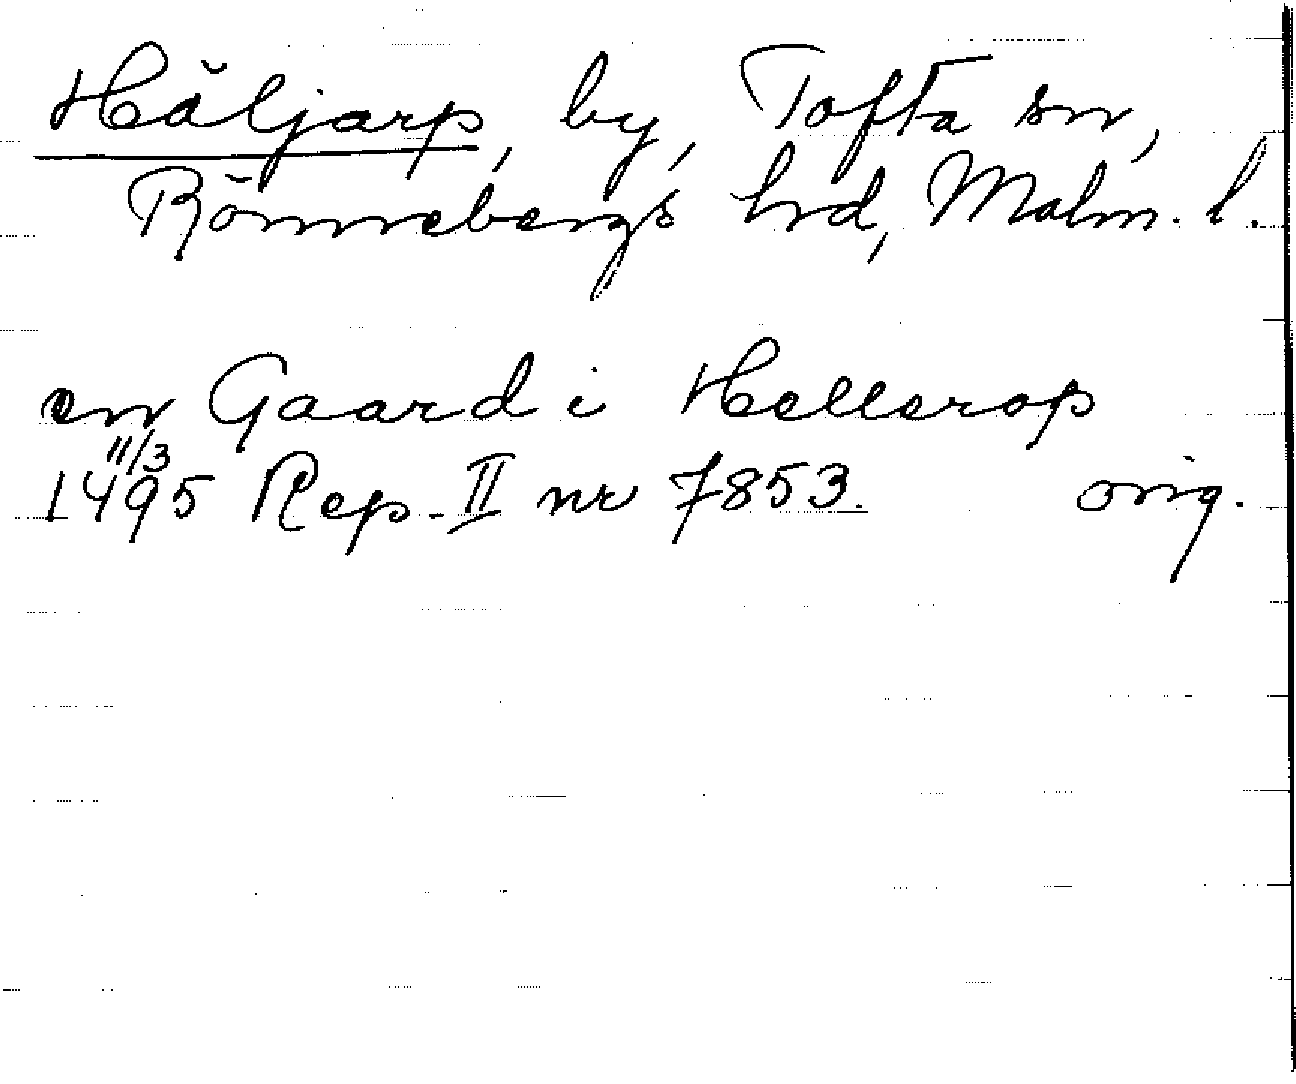 Häljarp, by, Tofta sn,
Rönnebergs hrd, Malm. l.
en Gaard i Hellerop
11/3
1495 Rep. II nr 7853. orig.